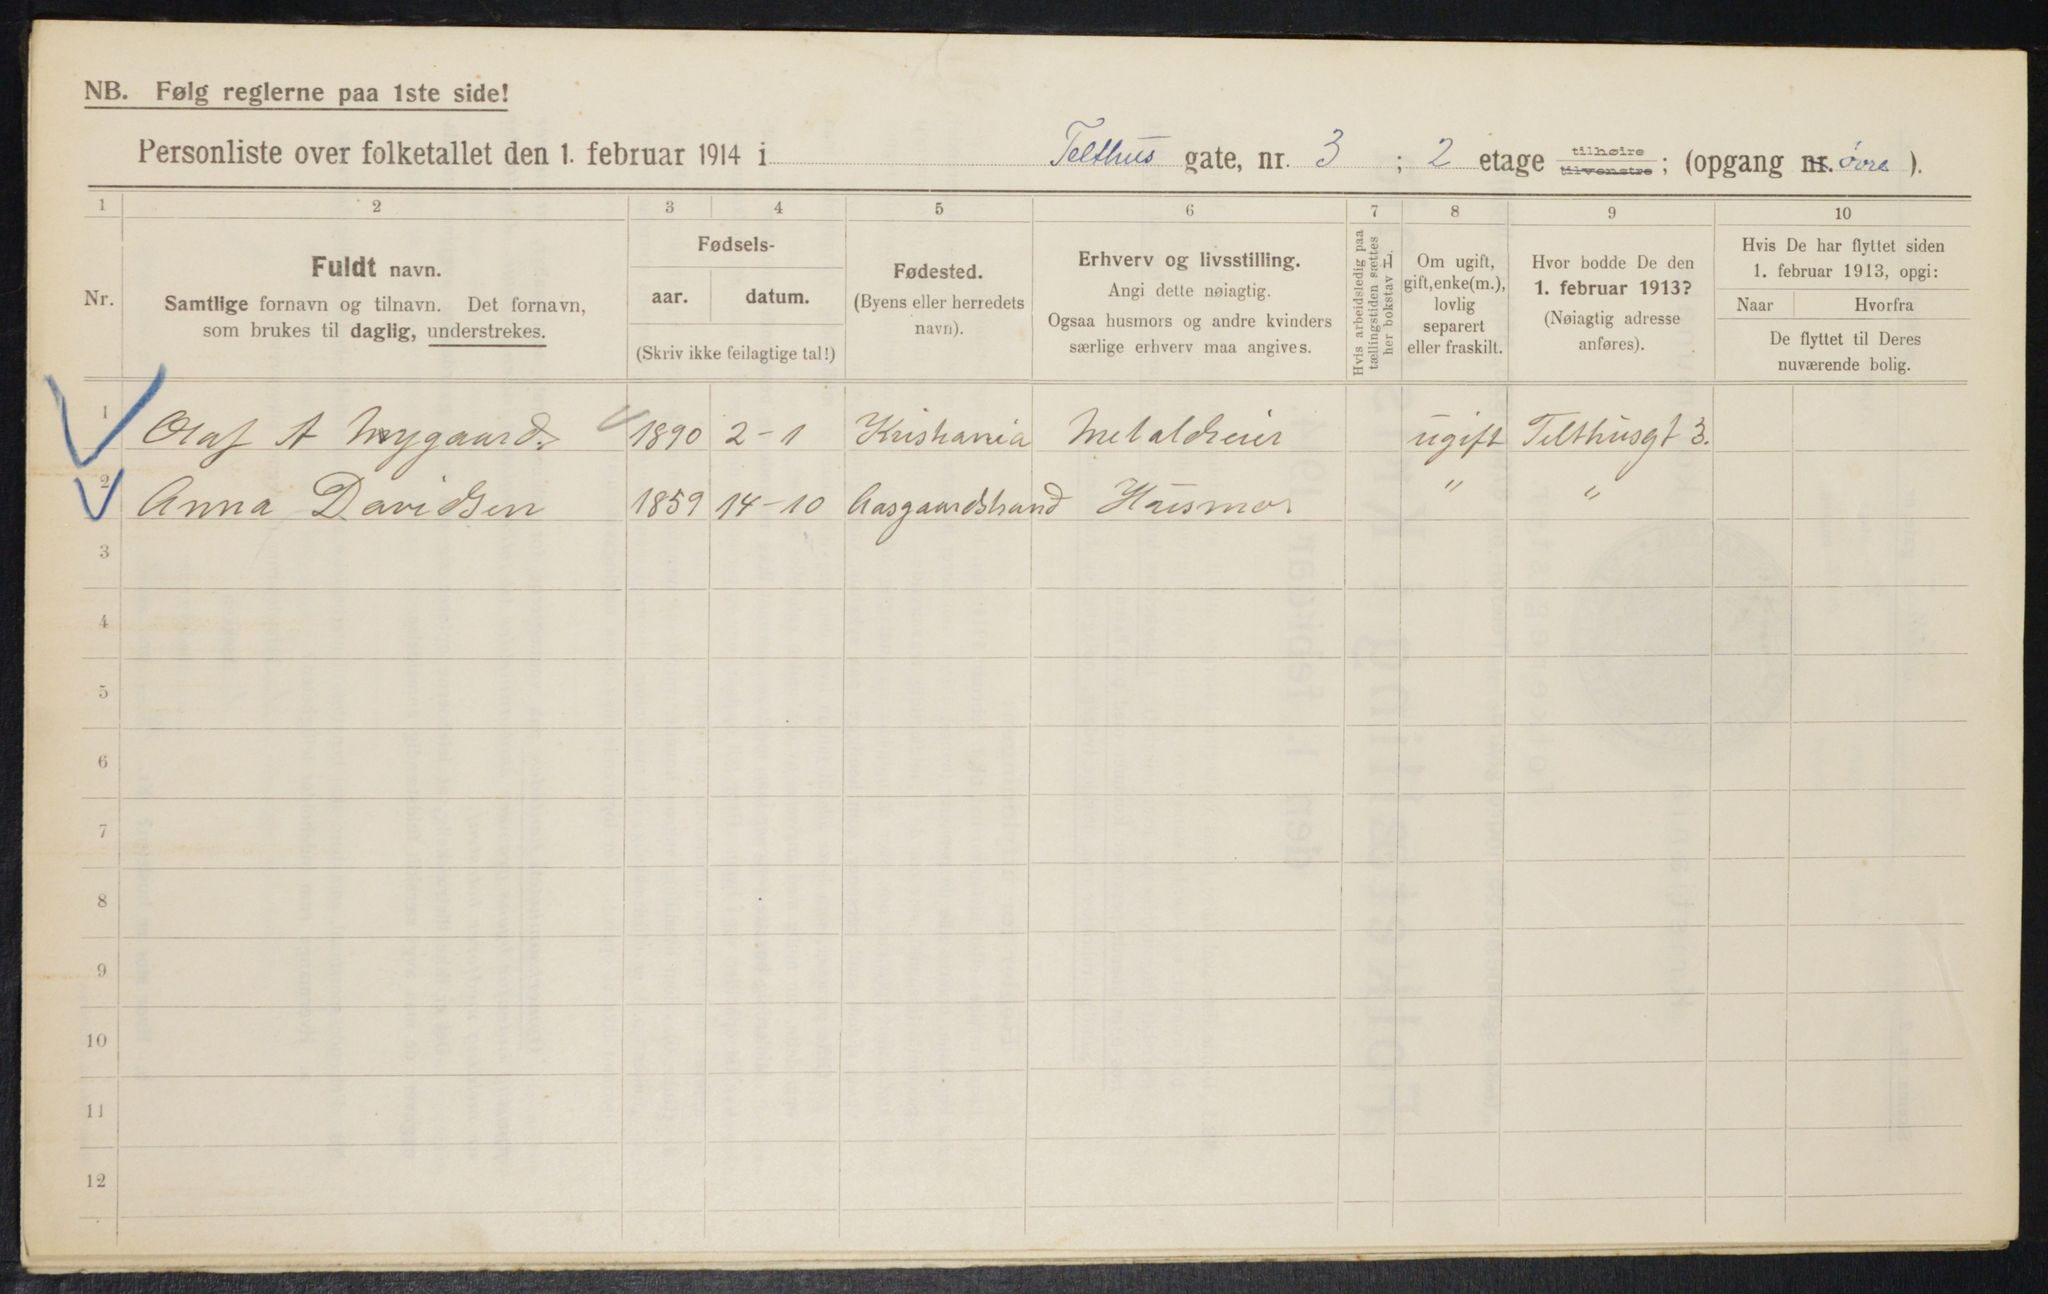 NB. Følg reglerne paa 1ste side!
Personliste over folketallet den 1. februar 1914 i Telthus gate, nr. 3 ; 2 etage tilhøire tilvenstre; (opgang nr. øvre ).
1 2 3 4 5 6 7 8 9 10
Nr.
Fuldt navn.
Samtlige fornavn og tilnavn. Det fornavn,
som brukes til daglig, understrekes.
Fødsels-
aar. datum.
(Skriv ikke feilagtige tal!)
Fødested.
(Byens eller herredets
navn).
Erhverv og livsstilling.
Angi dette nøiagtig.
Ogsaa husmors og andre kvinders
særlige erhverv maa angives.
Hvis arbeidsledig paa
tællingstiden sættes
her bokstav L.
Om ugift,
gift, enke(m.),
lovlig
separert
eller fraskilt.
Hvor bodde De den
1. februar 1913?
(Nøiagtig adresse
anføres).
Hvis De har flyttet siden
1. februar 1913, opgi:
Naar Hvorfra
De flyttet til Deres
nuværende bolig.
1 Olaf A Nygaard. 1890 2-1 Kristiania Metaldreier ugift Telthusgt 3.
2 Anna Davidsen 1859 14-10 Aasgaardstrand Husmor " "
3
4
5
6
7
8
9
10
11
12